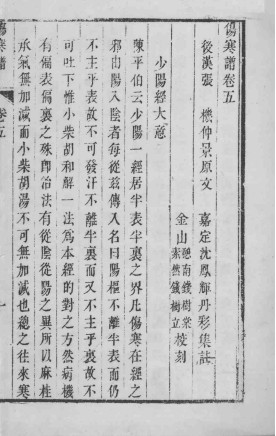 傷寒譜卷五
後漢張 機仲景原文 嘉定沈鳳輝丹彩集註
金山 錢樹棠 錢樹立 校刻
少陽經大意
陳平伯云少陽一經居半表半裏之界凡傷寒在經之
邪由陽入陰者每從玆傳入名曰陽樞不離半表而仍
不主乎表故不可發汗不離半裏而又不主乎裏故不
可吐下惟小柴胡和解一法為本經的對之方然病機
有偏表偏裏之殊即治法有從陰從陽之異所以麻桂
承氣無加減而小柴胡湯不可無加減也總之往來寒
傷寒譜
卷五